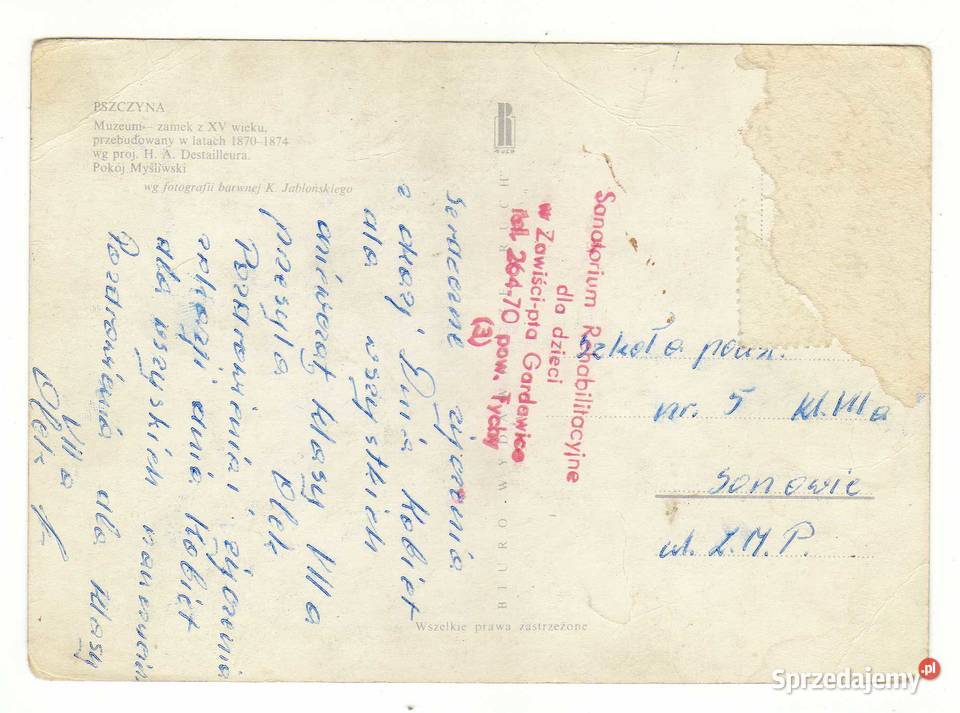 PSZCZYNA
Muzeum – zamek z XV wieku,
przebudowany w latach 1870–1874
wg proj. H. A. Destailleura.
Pokój Myśliwski
wg fotografii barwnej K. Jabłońskiego
RUCH
BIURO WYDAWNICZE RUCH
Serdeczne życzenia
z okazji Dnia Kobiet
dla wszystkich
dziewcząt klasy VII a
przesyła Olek
Pozdrowienia i życzenia
z okazji dnia Kobiet
dla wszyskich
Pozdrowienia dla klasy
VII a
Olek
Sanatorium Rehabilitacyjne
dla dzieci
w Zawiści-pta Gardawice
tel. 264-70 pow. Tychy
(3)
Szkoła
nr. 5 kl. VII a
ul. Z.M.P.
Wszelkie prawa zastrzeżone
Sprzedajemy.pl